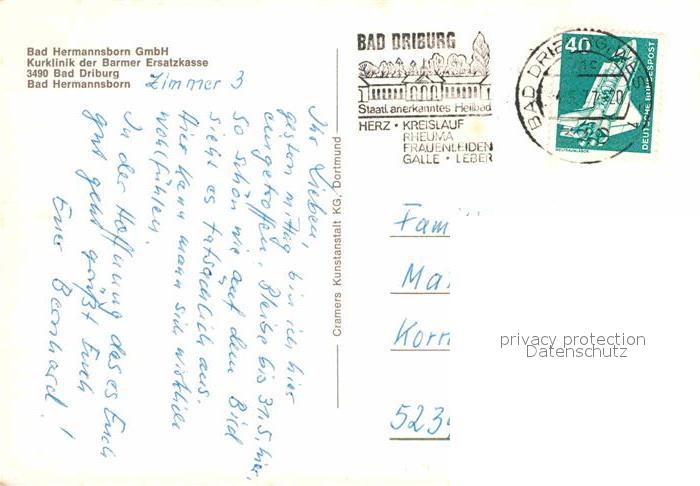 Bad Hermannsborn GmbH
Kurklinik der Barmer Ersatzkasse
3490 Bad Driburg
Bad Hermannsborn
Zimmer 3
Ihr Lieben,
gestern mittag bin ich hier
eingetroffen. Bleibe bis 31.5. hier.
So schön wie auf dem Bild
sieht es tatsächlich aus.
Hier kann man sich wirklich
wohlfühlen.
In der Hoffnung das es Euch
gut geht grüßt Euch
Euer Bernhard!
Cramers Kunstanstalt KG, Dortmund
BAD DRIBURG
Staatl. anerkanntes Heilbad
HERZ · KREISLAUF
RHEUMA
FRAUENLEIDEN
GALLE · LEBER
BAD DRIBURG, WESTF
40
DEUTSCHE BUNDESPOST
Fami
Ma
Korn
523
privacy protection
Datenschutz